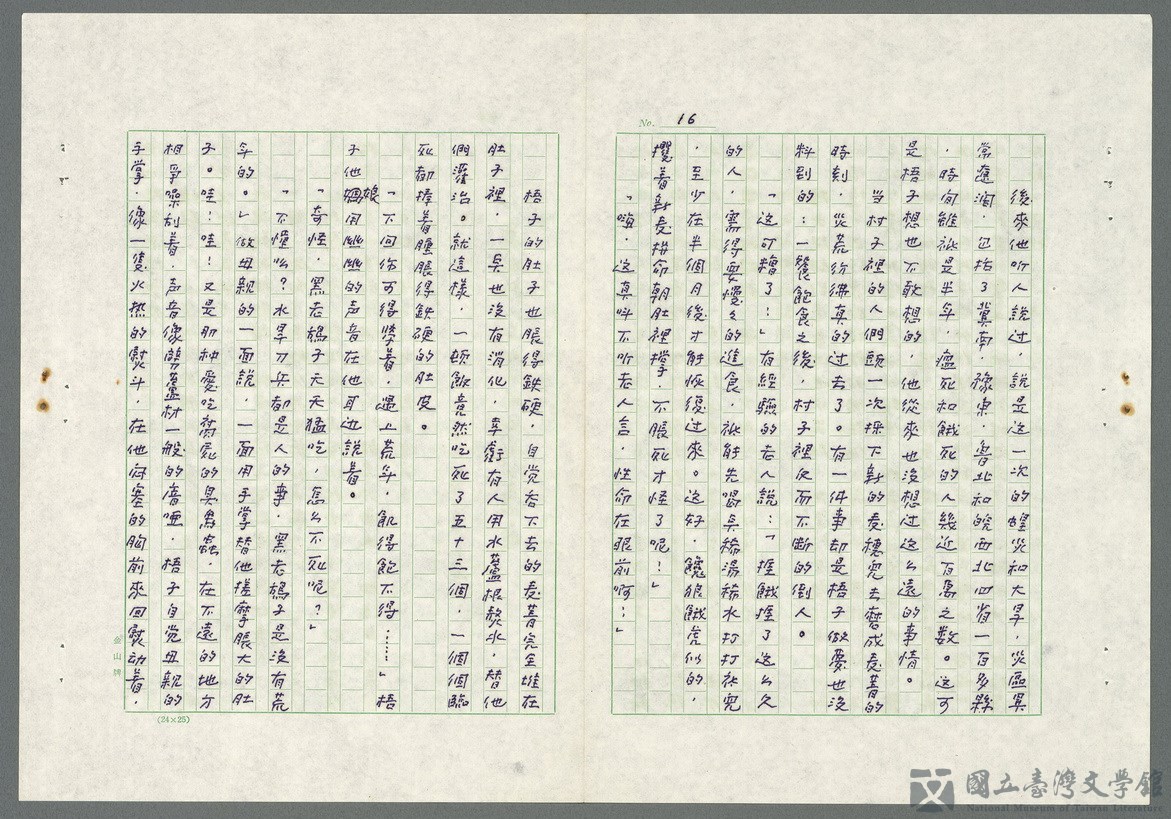 No. 16
後來他听人說过，說是这一次的蝗災和大旱，災區異
常遼濶，包括了冀南、豫東、魯北和皖西北四省一百多縣
，時间雖祇是半年，瘟死和餓死的人幾近百萬之數。这可
是梧子想也不敢想的，他從來也沒想过这么遠的事情。
当村子裡的人們頭一次採下新的麦穗兒去磨成麦菁的
時刻，災荒彷彿真的过去了。有一件事却是梧子做夢也沒
料到的：一餐飽食之後，村子裡反而不断的倒人。
「这可糟了！」有經驗的老人說：「捱餓捱了这么久
的人，需得要慢慢的進食，祇能先喝臭稀湯稀水打打衩兒
，至少在半個月後才能恢復过來。这好，饞狼餓虎似的，
攫着新麦拼命朝肚裡撐，不脹死才怪了呢！」
「嗨，这真叫不听老人言，性命在眼前啊！」
梧子的肚子也脹得鉄硬，自觉吞下去的麦菁完全堆在
肚子裡，一臭也沒有消化，幸虧有人用水蘆根熬水，替他
們灌治。就這樣，一頓飯竟然吃死了五十三個，一個個臨
死都捧着膨脹得鉄硬的肚皮。
「下回你可得學着，遇上荒年，飢得飽不得……」梧
子他娘用幽幽的声音在他耳边說着。
「奇怪，黑老鴰子天天猛吃，怎么不死呢？」
「不懂么？水旱刀兵都是人的事，黑老鴰子是沒有荒
年的。」做母親的一面說，一面用手掌替他搓摩脹大的肚
子。哇！哇！又是那种愛吃腐屍的臭黑蟲，在不遠的地方
相爭噪刮着，声音像劈薑材一般的瘖啞，梧子自觉母親的
手掌，像一隻火热的熨斗，在他窒塞的胸前來回熨动着，
(24×25)
金山牌
國立臺灣文學館
National Museum of Taiwan Literature